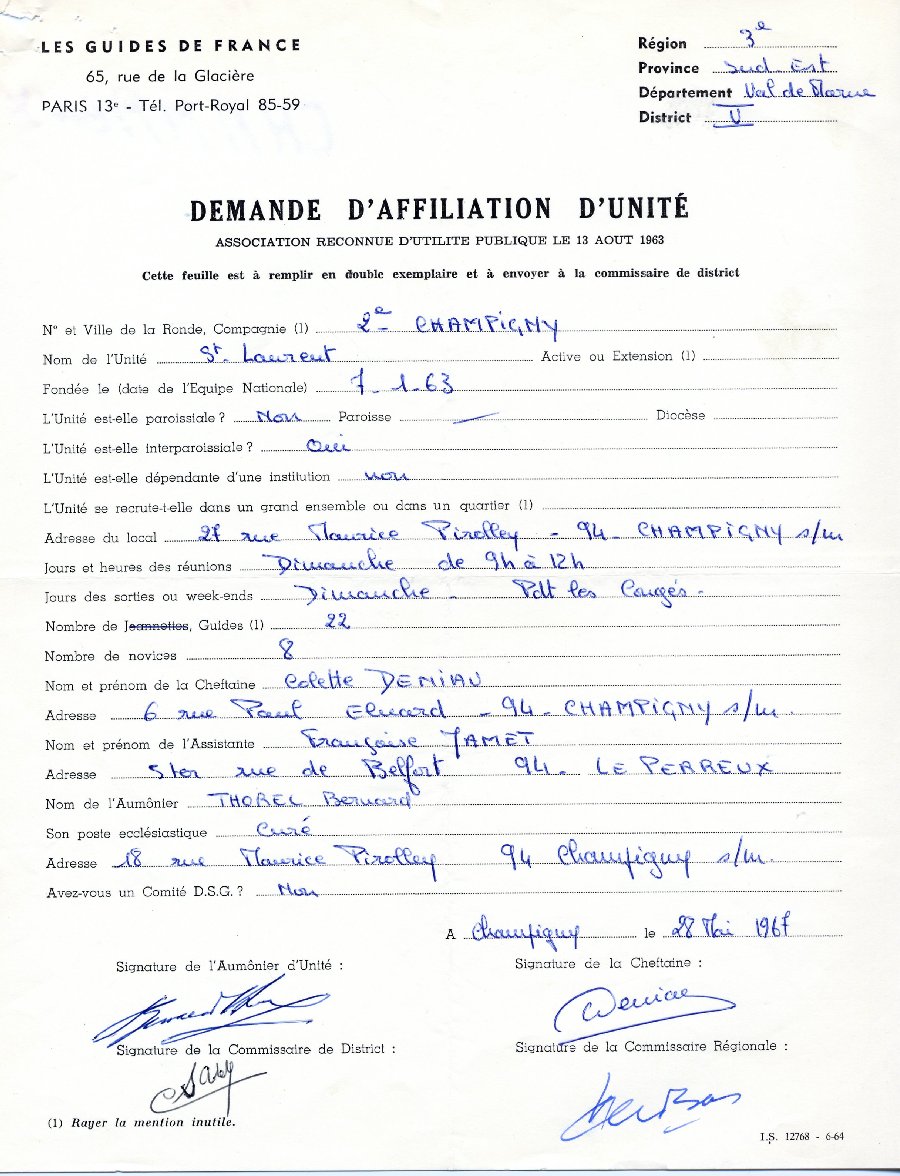 LES GUIDES DE FRANCE
65, rue de la Glacière
PARIS 13e - Tél. Port-Royal 85-59
Région 3e
Province Sud Est
Département Val de Marne
District V
DEMANDE D'AFFILIATION D'UNITÉ
ASSOCIATION RECONNUE D'UTILITE PUBLIQUE LE 13 AOUT 1963
Cette feuille est à remplir en double exemplaire et à envoyer à la commissaire de district
N° et Ville de la Ronde, Compagnie (1) 2e CHAMPIGNY
Nom de l'Unité St. Laurent Active ou Extension (1)
Fondée le (date de l'Equipe Nationale) 7.1.63
L'Unité est-elle paroissiale ? Non Paroisse — Diocèse
L'Unité est-elle interparoissiale ? Oui
L'Unité est-elle dépendante d'une institution non
L'Unité se recrute-t-elle dans un grand ensemble ou dans un quartier (1)
Adresse du local 27 rue Maurice Pirolley - 94 - CHAMPIGNY s/m
Jours et heures des réunions Dimanche de 9h à 12h
Jours des sorties ou week-ends Dimanche - Pdt les Congés -
Nombre de Jeannettes, Guides (1) 22
Nombre de novices 8
Nom et prénom de la Cheftaine Colette DEMIAU
Adresse 6 rue Paul Eluard - 94 - CHAMPIGNY s/m.
Nom et prénom de l'Assistante Françoise JAMET
Adresse 5 ter rue de Belfort 94 - LE PERREUX
Nom de l'Aumônier THOREL Bernard
Son poste ecclésiastique Curé
Adresse 18 rue Maurice Pirolley 94 Champigny s/m.
Avez-vous un Comité D.S.G. ? Non
A Champigny le 28 Mai 1967
Signature de l'Aumônier d'Unité :
Signature de la Cheftaine :
Signature de la Commissaire de District :
Signature de la Commissaire Régionale :
(1) Rayer la mention inutile.
I.S. 12768 - 6-64